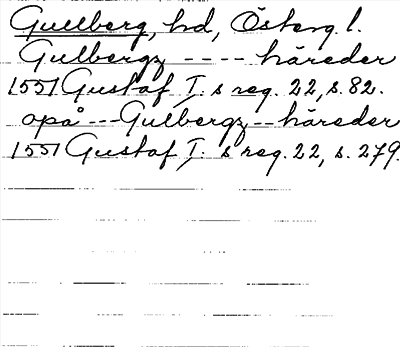 Gullberg, hd, Österg l.
Gulbergz ---- häreder
1551 Gustaf I: s reg. 22, s. 82.
opå --- Gulbergz -- häreder
1551 Gustaf I: s reg. 22, s. 279.